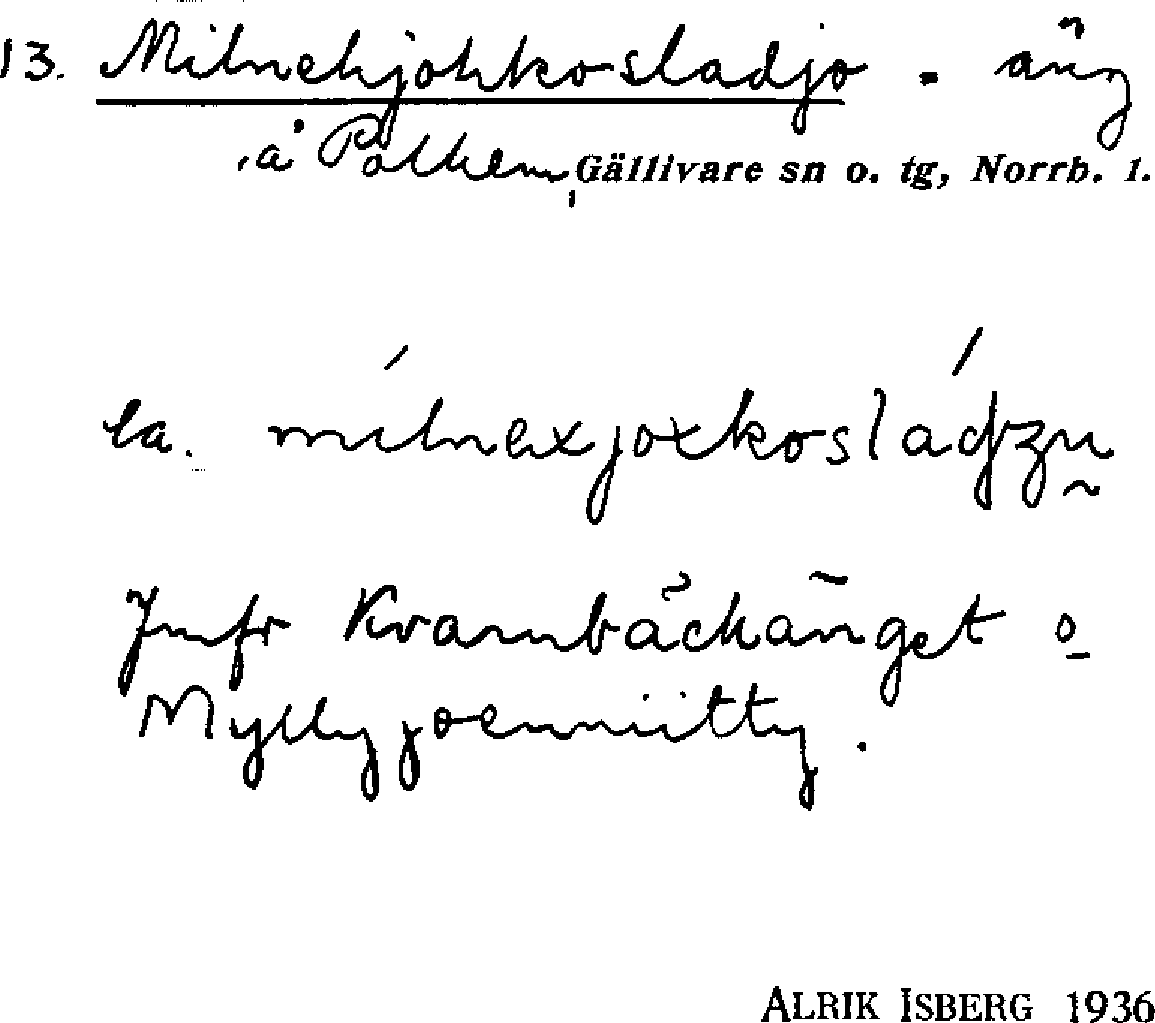 13. Milnehjohkosladjo - äng
å Polhem, Gällivare sn o. tg, Norrb. l.
la. mílnexjoxkosládzu
Jmfr Kvarnbäckänget o
Myllyjoenniitty.
ALRIK ISBERG 1936